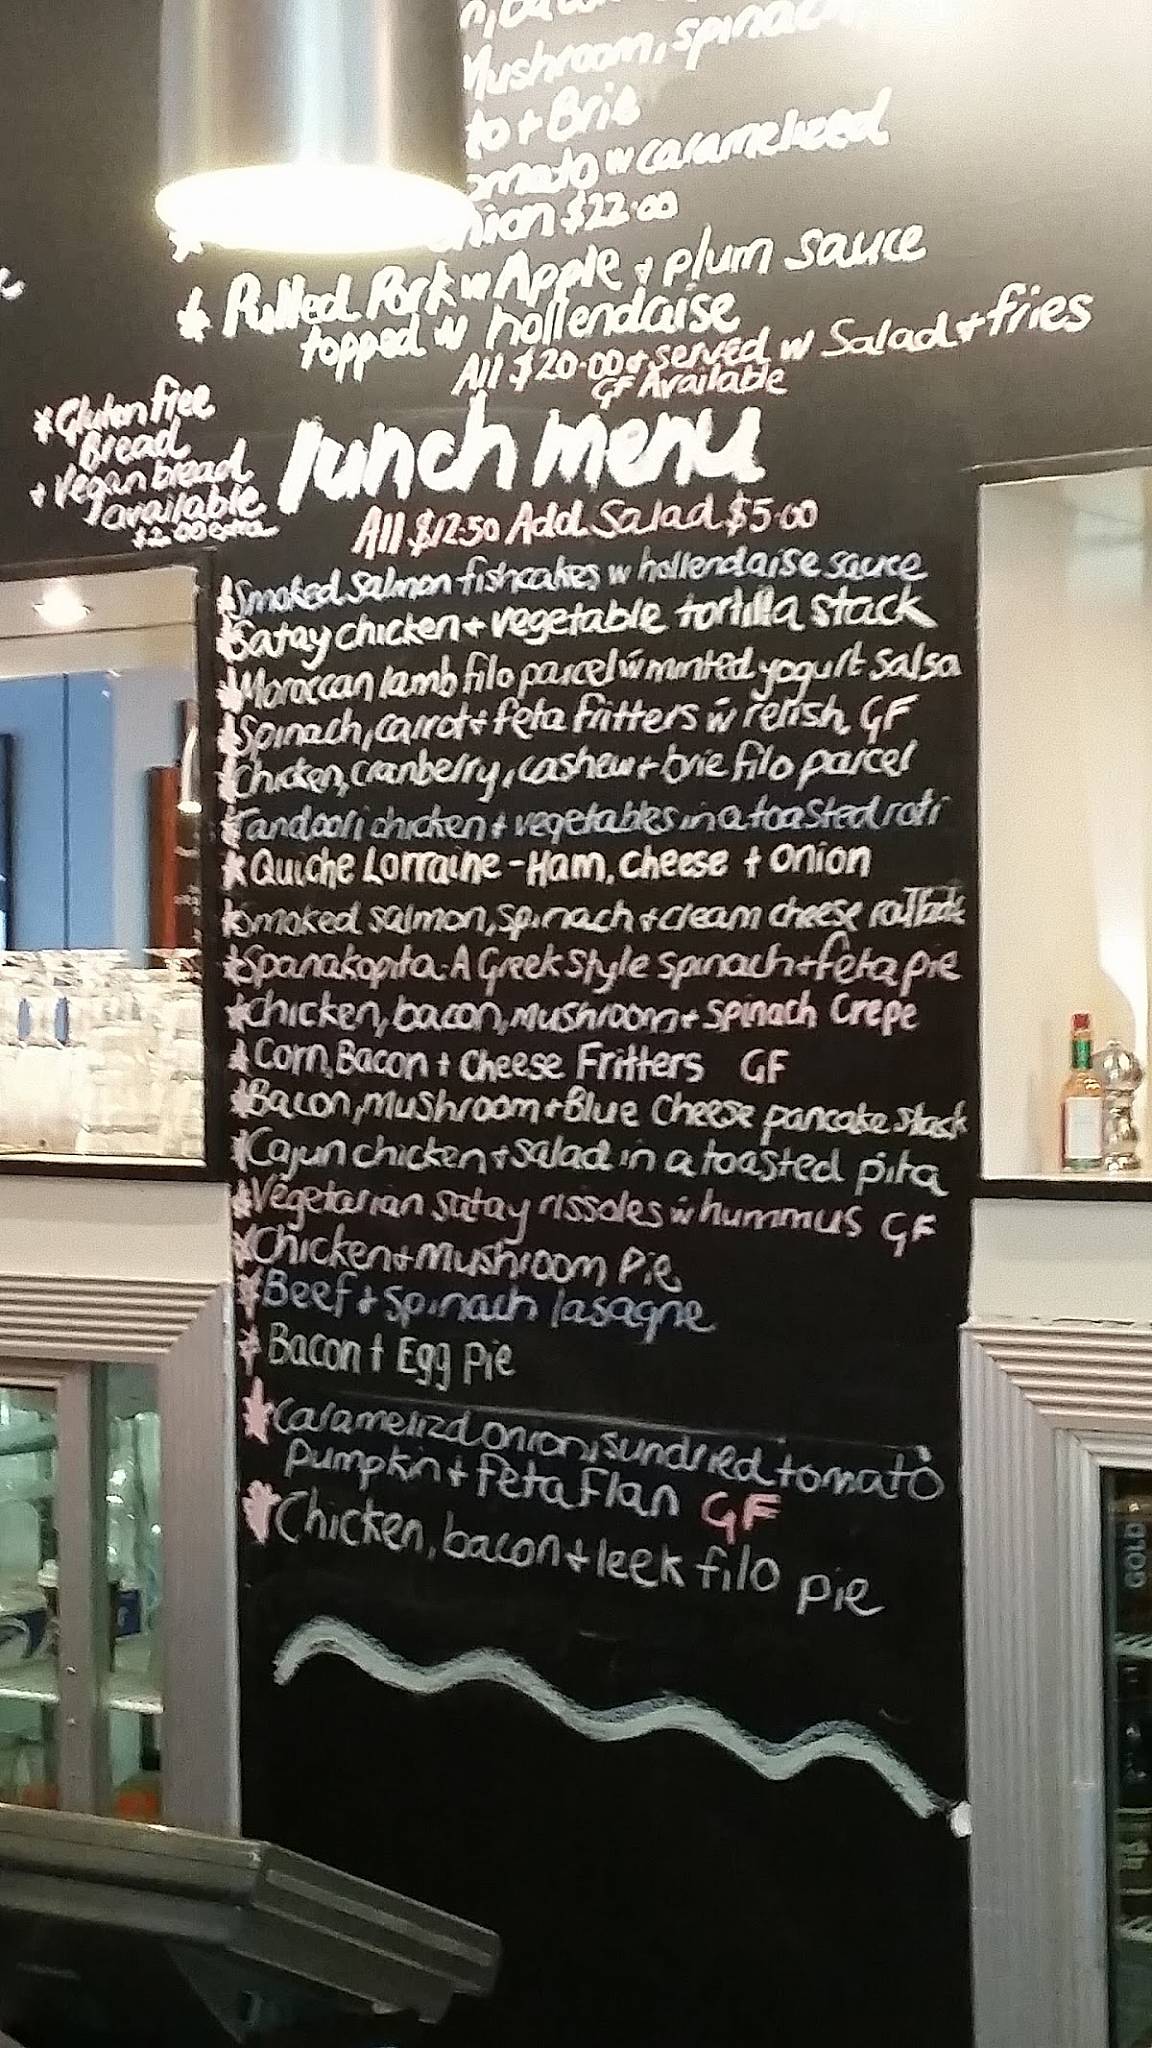 Mushroom, spinac
to + Brie
omato w caramelized
nion $22.00
* Pulled Pork w Apple + plum sauce
topped w hollendaise
All $20.00 + served w Salad + fries
GF Available
* Gluten free
Bread
+ Vegan bread
available
$2.00 extra
lunch menu
All $12.50 Add Salad $5.00
* Smoked Salmon fishcakes w hollendaise sauce
* Satay chicken + vegetable tortilla stack
* Moroccan lamb filo parcel w minted yogurt salsa
* Spinach, carrot + feta fritters w relish GF
* Chicken, cranberry, cashew + brie filo parcel
* Tandoori chicken + vegetables in a toasted roti
* Quiche Lorraine - Ham, cheese + onion
* Smoked salmon, spinach + cream cheese
* Spanakopita. A Greek style spinach + feta pie
* Chicken, bacon, mushroom + spinach Crepe
* Corn, Bacon + Cheese Fritters GF
* Bacon, mushroom + Blue Cheese pancake stack
* Cajun chicken + salad in a toasted pita
* Vegetarian satay rissoles w hummus GF
* Chicken + Mushroom Pie
* Beef + Spinach lasagne
* Bacon + Egg Pie
* Caramelizd onion, sundried tomato
pumpkin + feta Flan GF
* Chicken, bacon + leek filo pie
GOLD